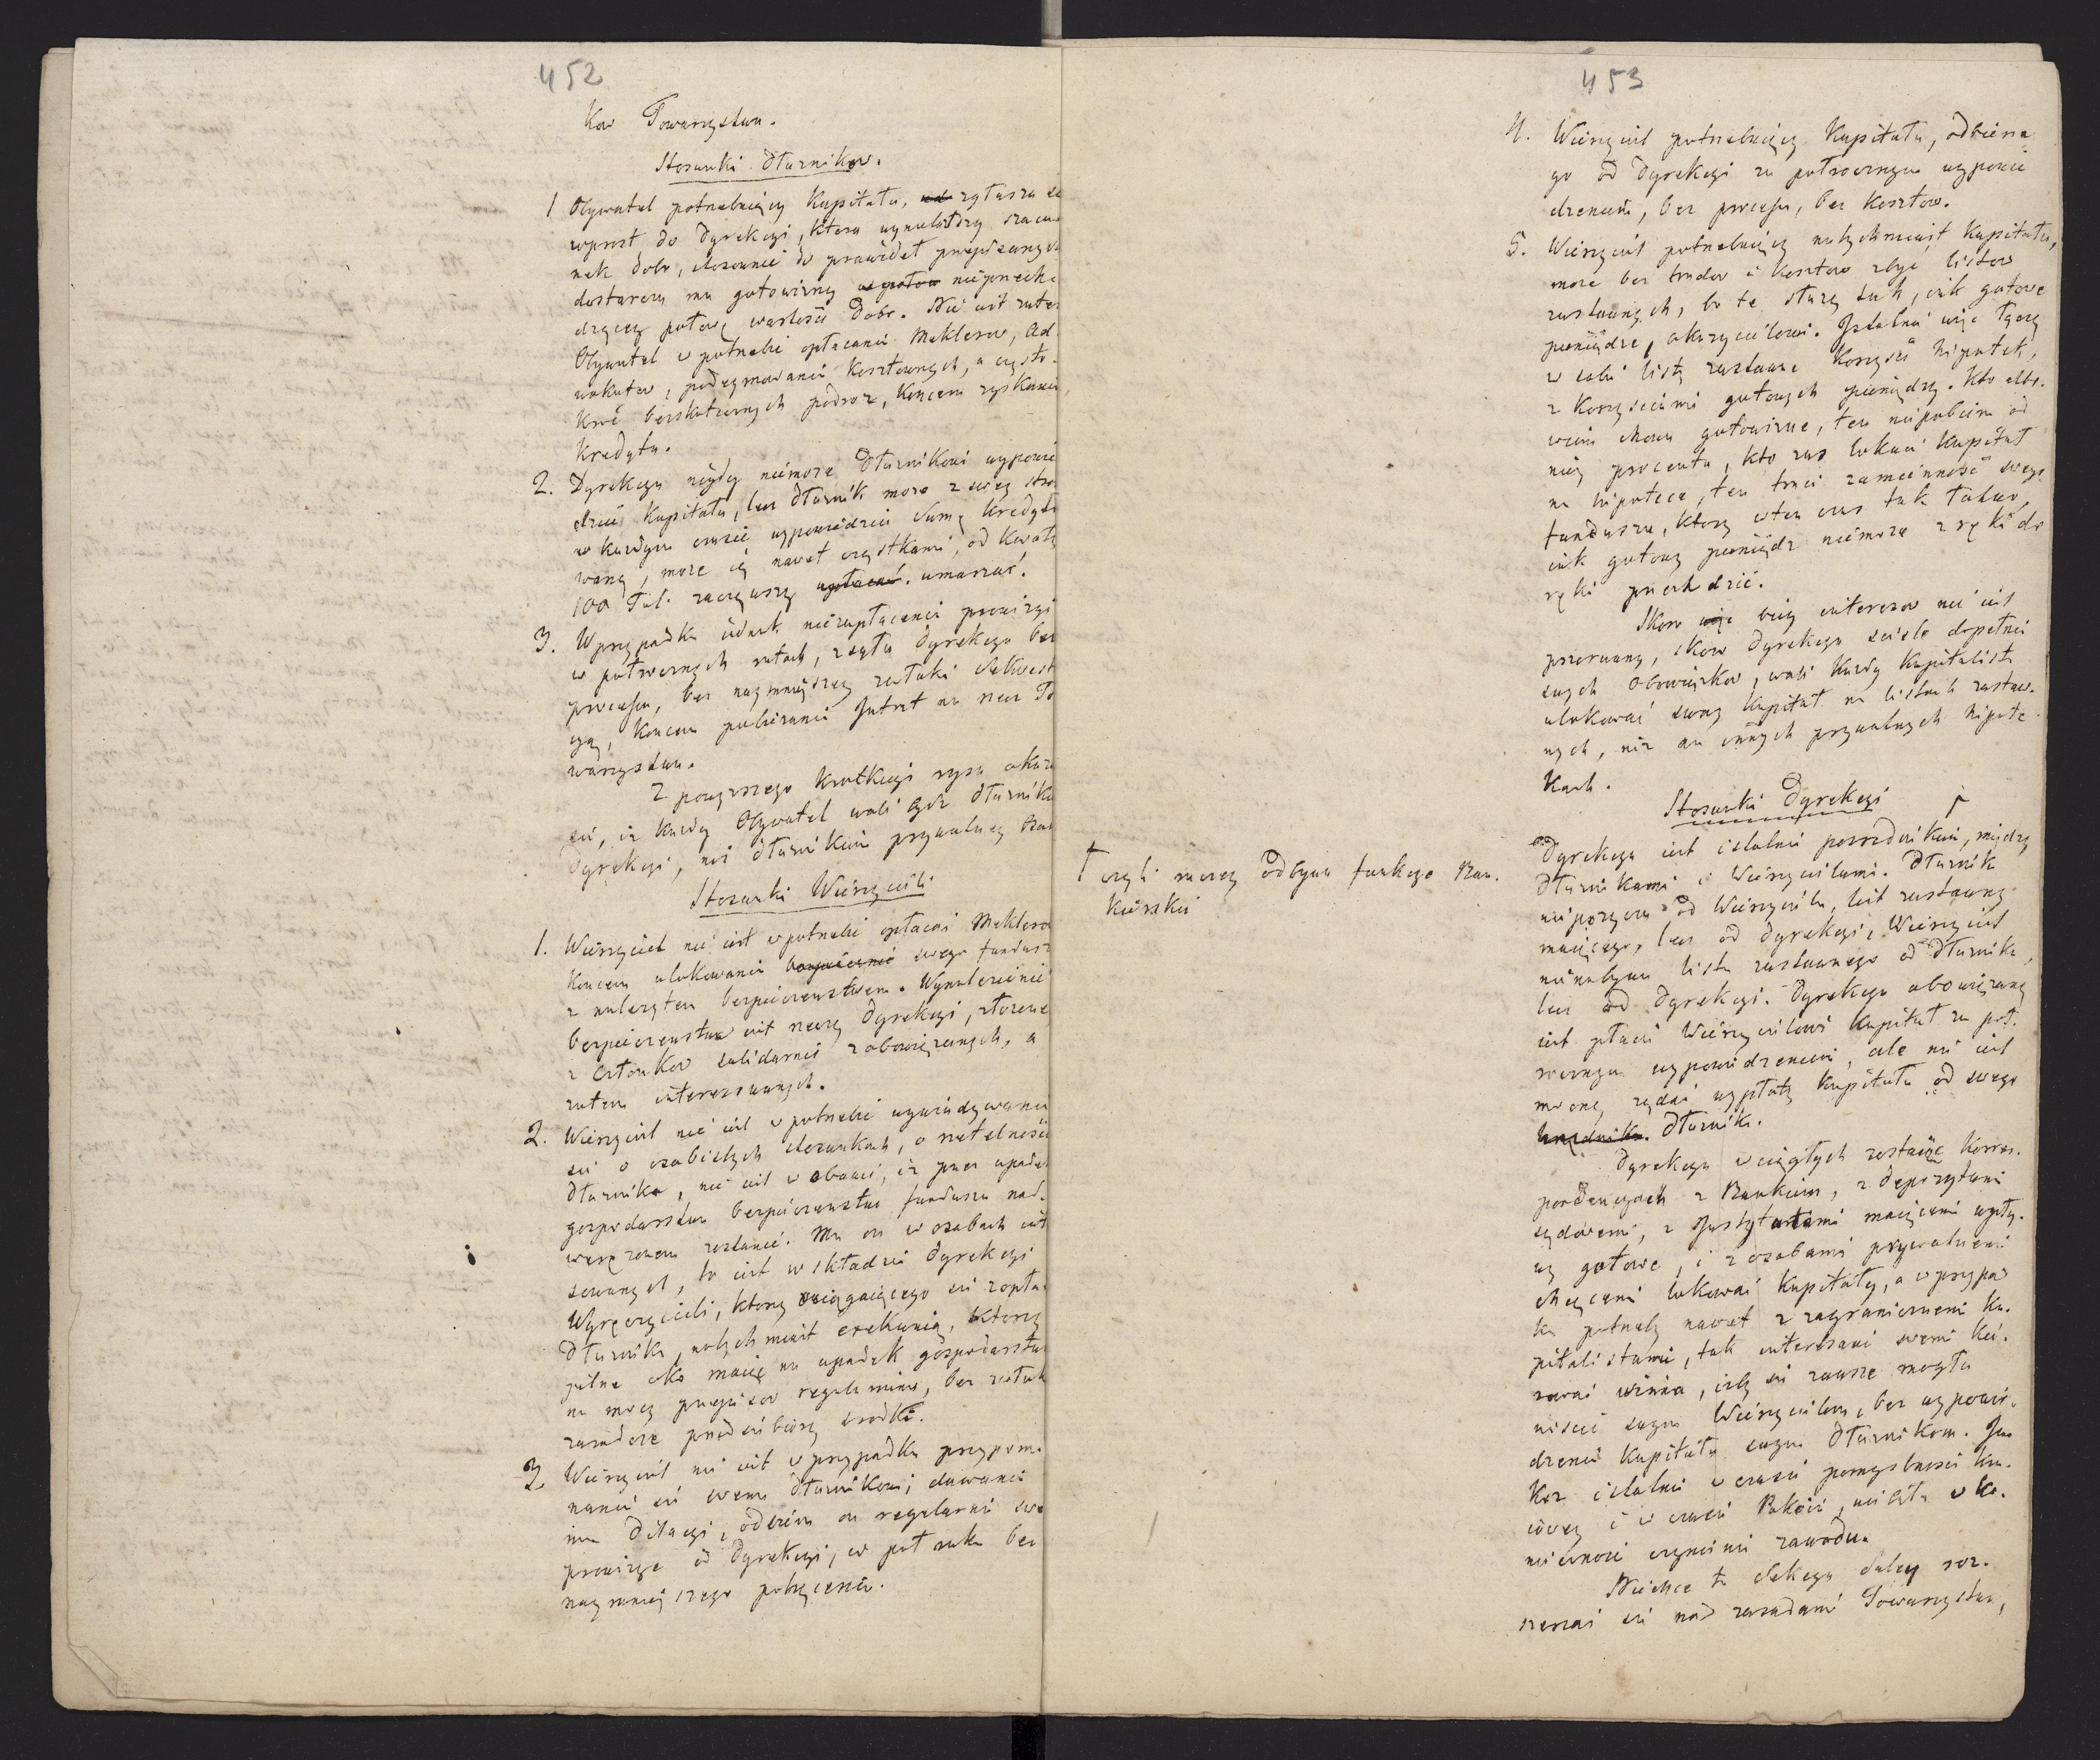 452
Kow Towarzystwa.
Stosunki Dłuznikow.
1 Obywatel potrzebuiący Kapitału, zgłasza se
wprost do Dyrekcyi, ktora wynalazłszy szacu
nek dobr, stosownie do prawideł przepisanych
dostarcza mu gotowizny nieprzecho
dzącey połowę wartości Dobr. Nie iest zatem
Obywatel w potrzebie opłacania Meklerow, Ad
wokatow, podeymowania kosztownych, a często
kroć bezskutecznych podroz, koncem zyskania
Kredytu.
2. Dyrekcya nigdy niemoze Dłuznikowi wypowie
dzieć Kapitału, lecz Dłuznik moze z swey stro
w kazdym czasie wypowiedzieć Sumę kredyto
waną, moze ią nawet cząstkami, od kwoty
100 Tal. zacząwszy wypłacać. umarzać.
3. W przypadku iednak niezapłacenia prowizyi
w połrocznych ratach, zsyła Dyrekcya bez
processu, bez naymnieyszey zwłoki Sekwestr
cyą, koncem pobierania Intrat na rzecz To
warzystwa.
Z powyzszego krotkiego rysu okazu
sie, iz kazdy Obywatel woli bydz dłuznikiem
Dyrekcyi, niz dłuznikiem prywatney Osoby
Stosunki Wierzycieli
1. Wierzyciel nie iest w potrzebie opłacać Meklerow
koncem ulokowania bezpiecznie swego fundusz
z należytem bezpieczenstwem. Wynalezienie
bezpieczenstwa iest rzeczą Dyrekcyi, złozoney
z członkow solidarnie zobowiązanych, a
zatem interessowanych.
2. Wierzyciel nie iest w potrzebie wywiadywania
sie o osobistych stosunkach, o rzetelności
Dłuznika, nie iest w obawie, iz przez upadek
gospodarstwa bezpieczenstwo funduszu nad-
weręzonem zostanie. Ma on w osobach inte
sowanych, to iest w składzie Dyrekcyi
Wyręczycieli, ktorzy ociągaiącego sie z opłat
Dłuznika, natychmiast exekwuią, ktorzy
pilne oko maią na upadek gospodarstw
na mocy przepisow regulaminu, bez zwłok
zaradcze przedsiębiorą srodki.
3. Wierzyciel nie iest w przypadku przypomi
nania sie swemu Dłuznikowi, dawania
mu Dilacyi, odbiera on regularnie swo
prowizye od Dyrekcyi, w poł roku bez
naymnieyszego potrącenia.
453
4. Wierzyciel potrzebuiący Kapitału, odbiera
go od Dyrekcyi za połrocznym wypowie
dzeniem, bez processu, bez kosztow.
5. Wierzyciel potrzebuiący natychmiast Kapitału,
moze bez trudow i kosztow zbyć listow
zastawnych, bo te słuzą tak, iak gotowe
pieniądze, okazycielowi. Istotnie więc łączą
w sobie listy zastawne korzyści hipotek,
z korzyściami gotowych pieniędzy. Kto albo-
wiem chowa gotowizne, ten niepobiera od
niey procentu, kto zas lokuie Kapitał
na hipotece, ten traci zamienność swego
funduszu, ktory wten czas tak łatwo,
iak gotowy pieniądz niemoze z ręki do
ręki przechodzić.
Skoro więc bieg interesow nie iest
przerwany, skoro Dyrekcya scisle dopełnia
swych obowiązkow, woli kazdy Kapitalista
ulokować swoy Kapitał na listach zastaw-
nych, niz na innych prywatnych hipote-
kach.
Stosunki Dyrekcyi †
Dyrekcya iest istotnie posrednikiem, między
Dłuznikami i Wierzycielami. Dłuznik
niepozycza od Wierzyciela, list zastawny
maiącego, lecz od Dyrekcyi, Wierzyciel
nienabywa listu zastawnego od Dłuznika,
lecz od Dyrekcyi. Dyrekcya obowiązaną
iest płacić Wierzycielowi Kapitał za poł-
rocznym wypowiedzeniem, ale nie iest
mocną ządać wypłaty Kapitału od swego
Dłuznika.
Dyrekcya w ciągłych zostaiąc korres-
pondencyach z Bankiem, z depozytami
sądowemi, z Instytutami maiącemi wpły-
wy gotowe, i z osobami prywatnemi
chcącemi lokować Kapitały, a w przypad
ku potrzeby nawet z zagranicznemi Ka-
pitalistami, tak interesami swemi kie-
rować winna, izby sie zawsze mogła
niscić swym Wierzycielom, bez wypowie-
dzenia Kapitału swym Dłuznikom. Ja
koz istotnie w czasie pomyslności kra-
iowey i w czasie Pokoiu, nie iest w ko-
nieczności czynienia zawodu.
Niechce tu Sekcya daley roz-
szerzać sie nad zasadami Towarzystwa,
† czyli raczey odbywa funkcye Ban-
kierskie